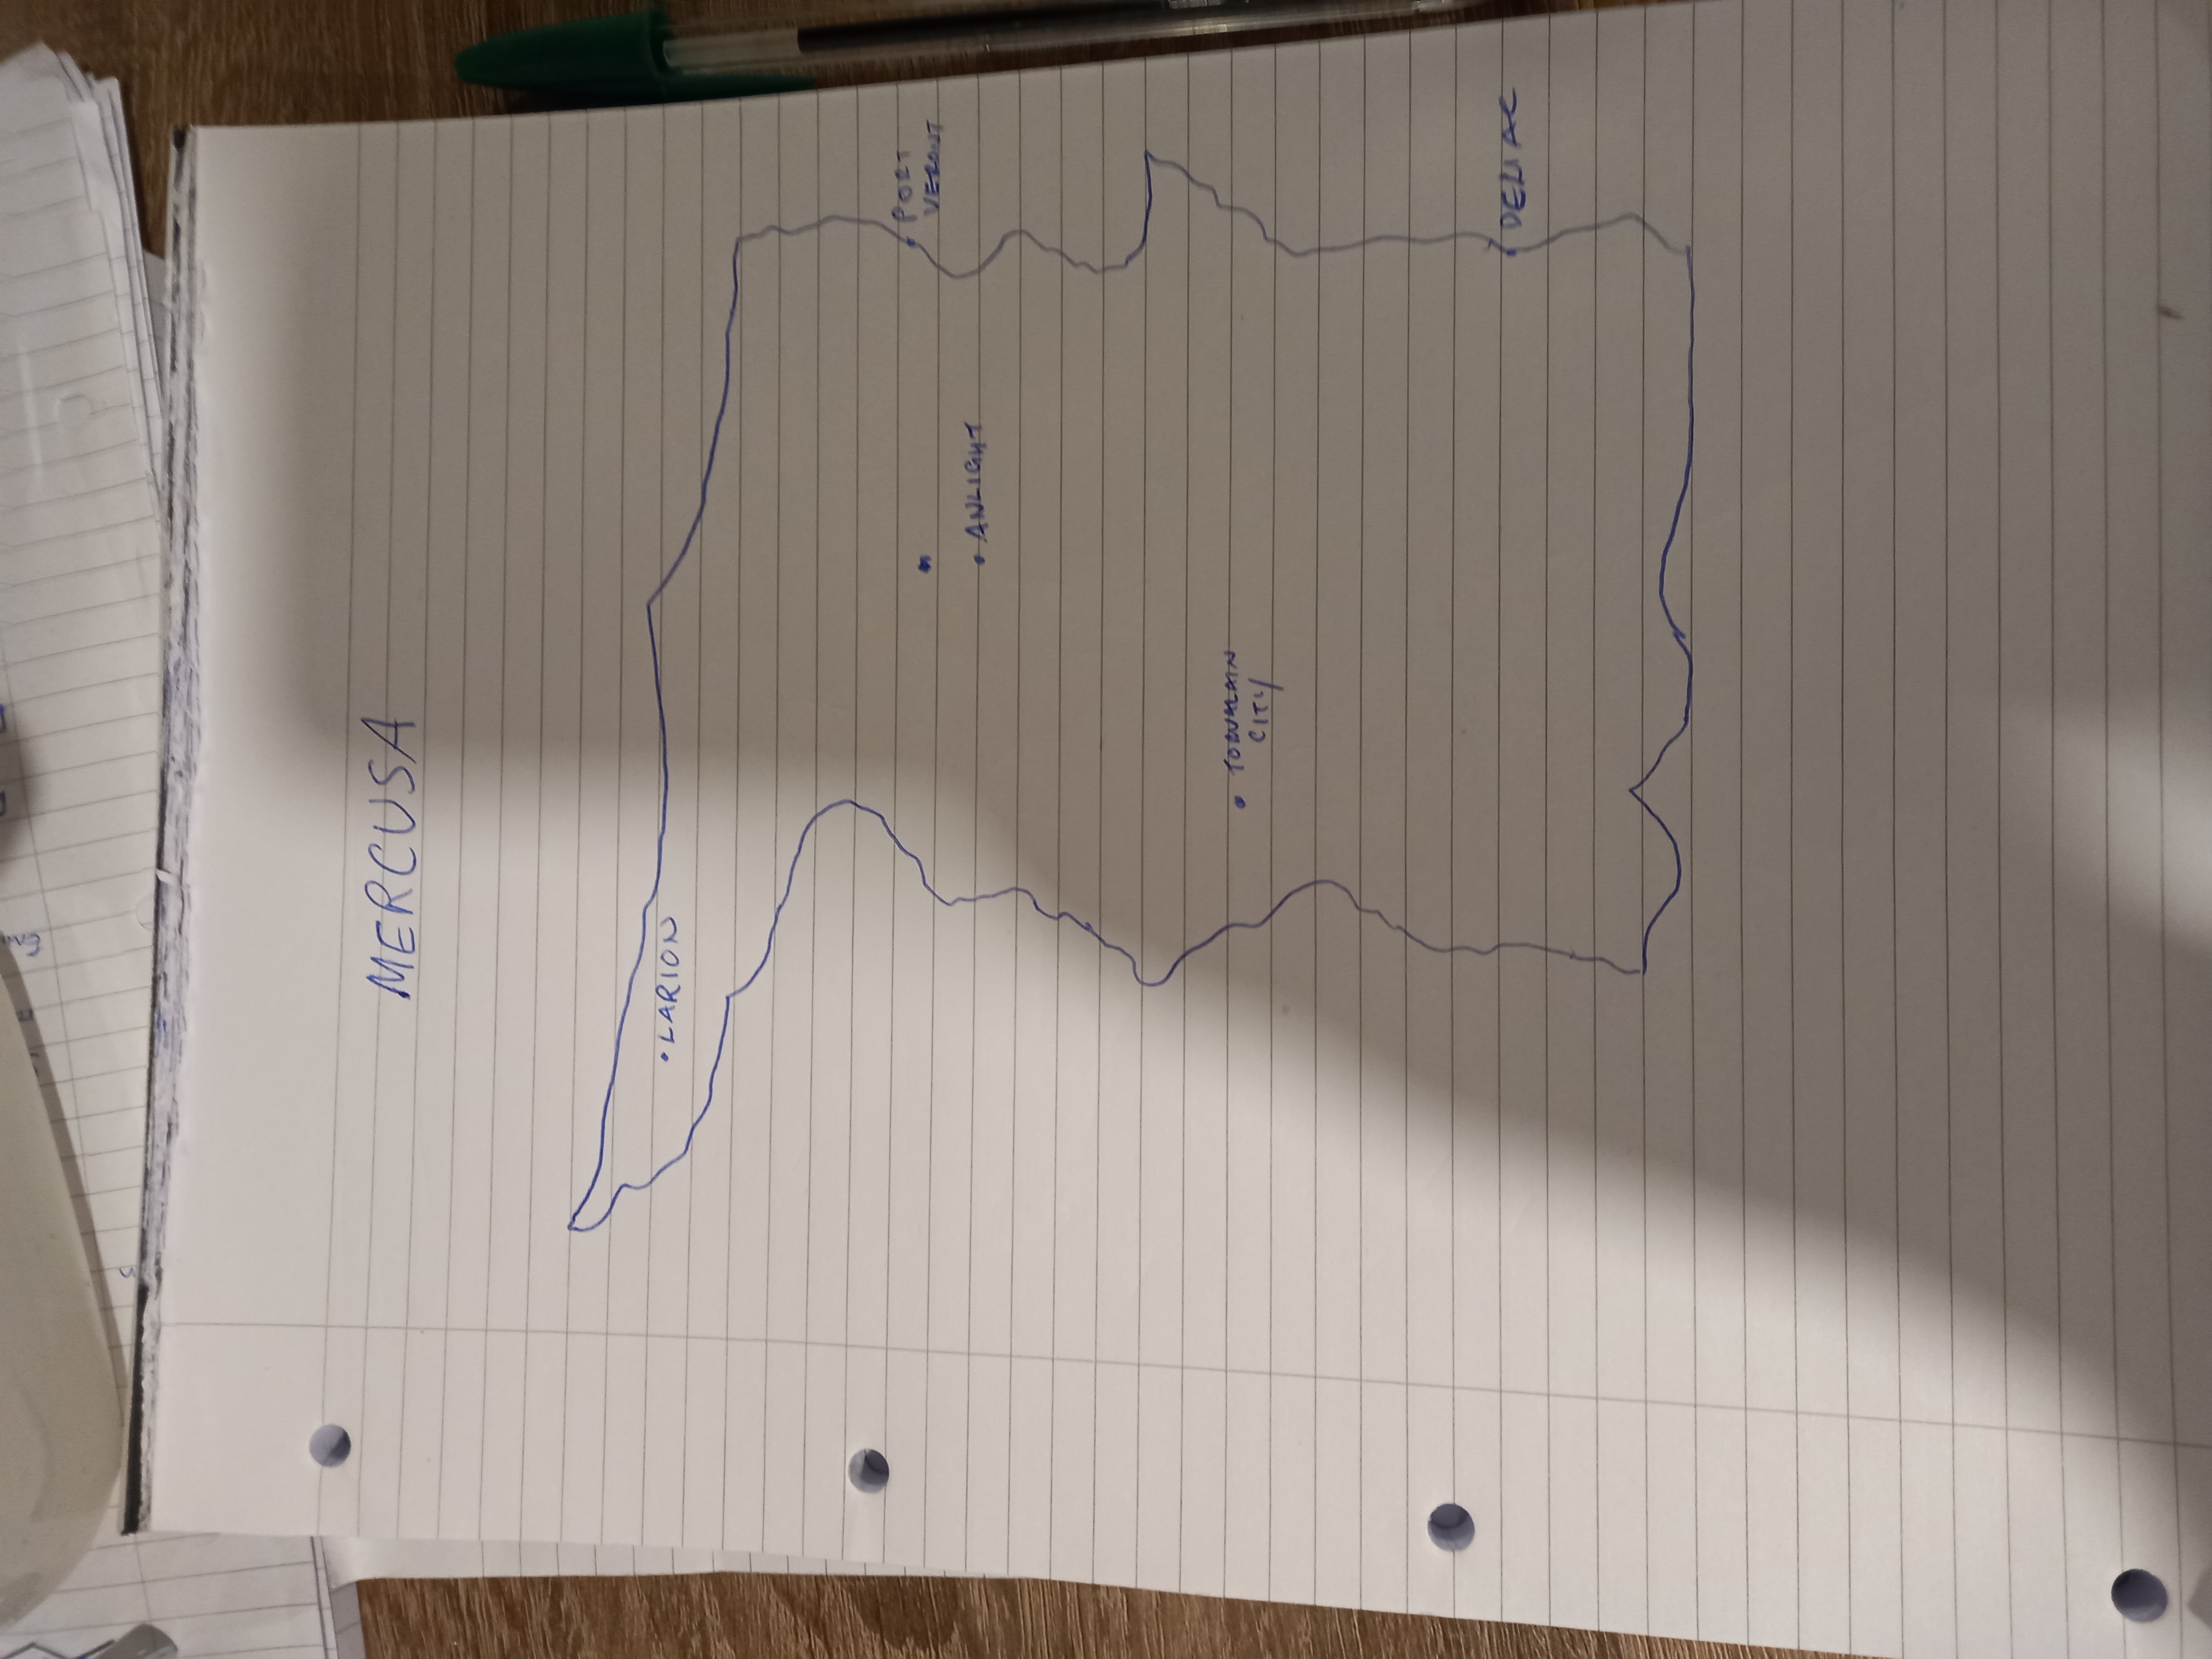 MERCUSA
LARION
PORT
VERONT
ANLIGHT
TORVALAIN
CITY